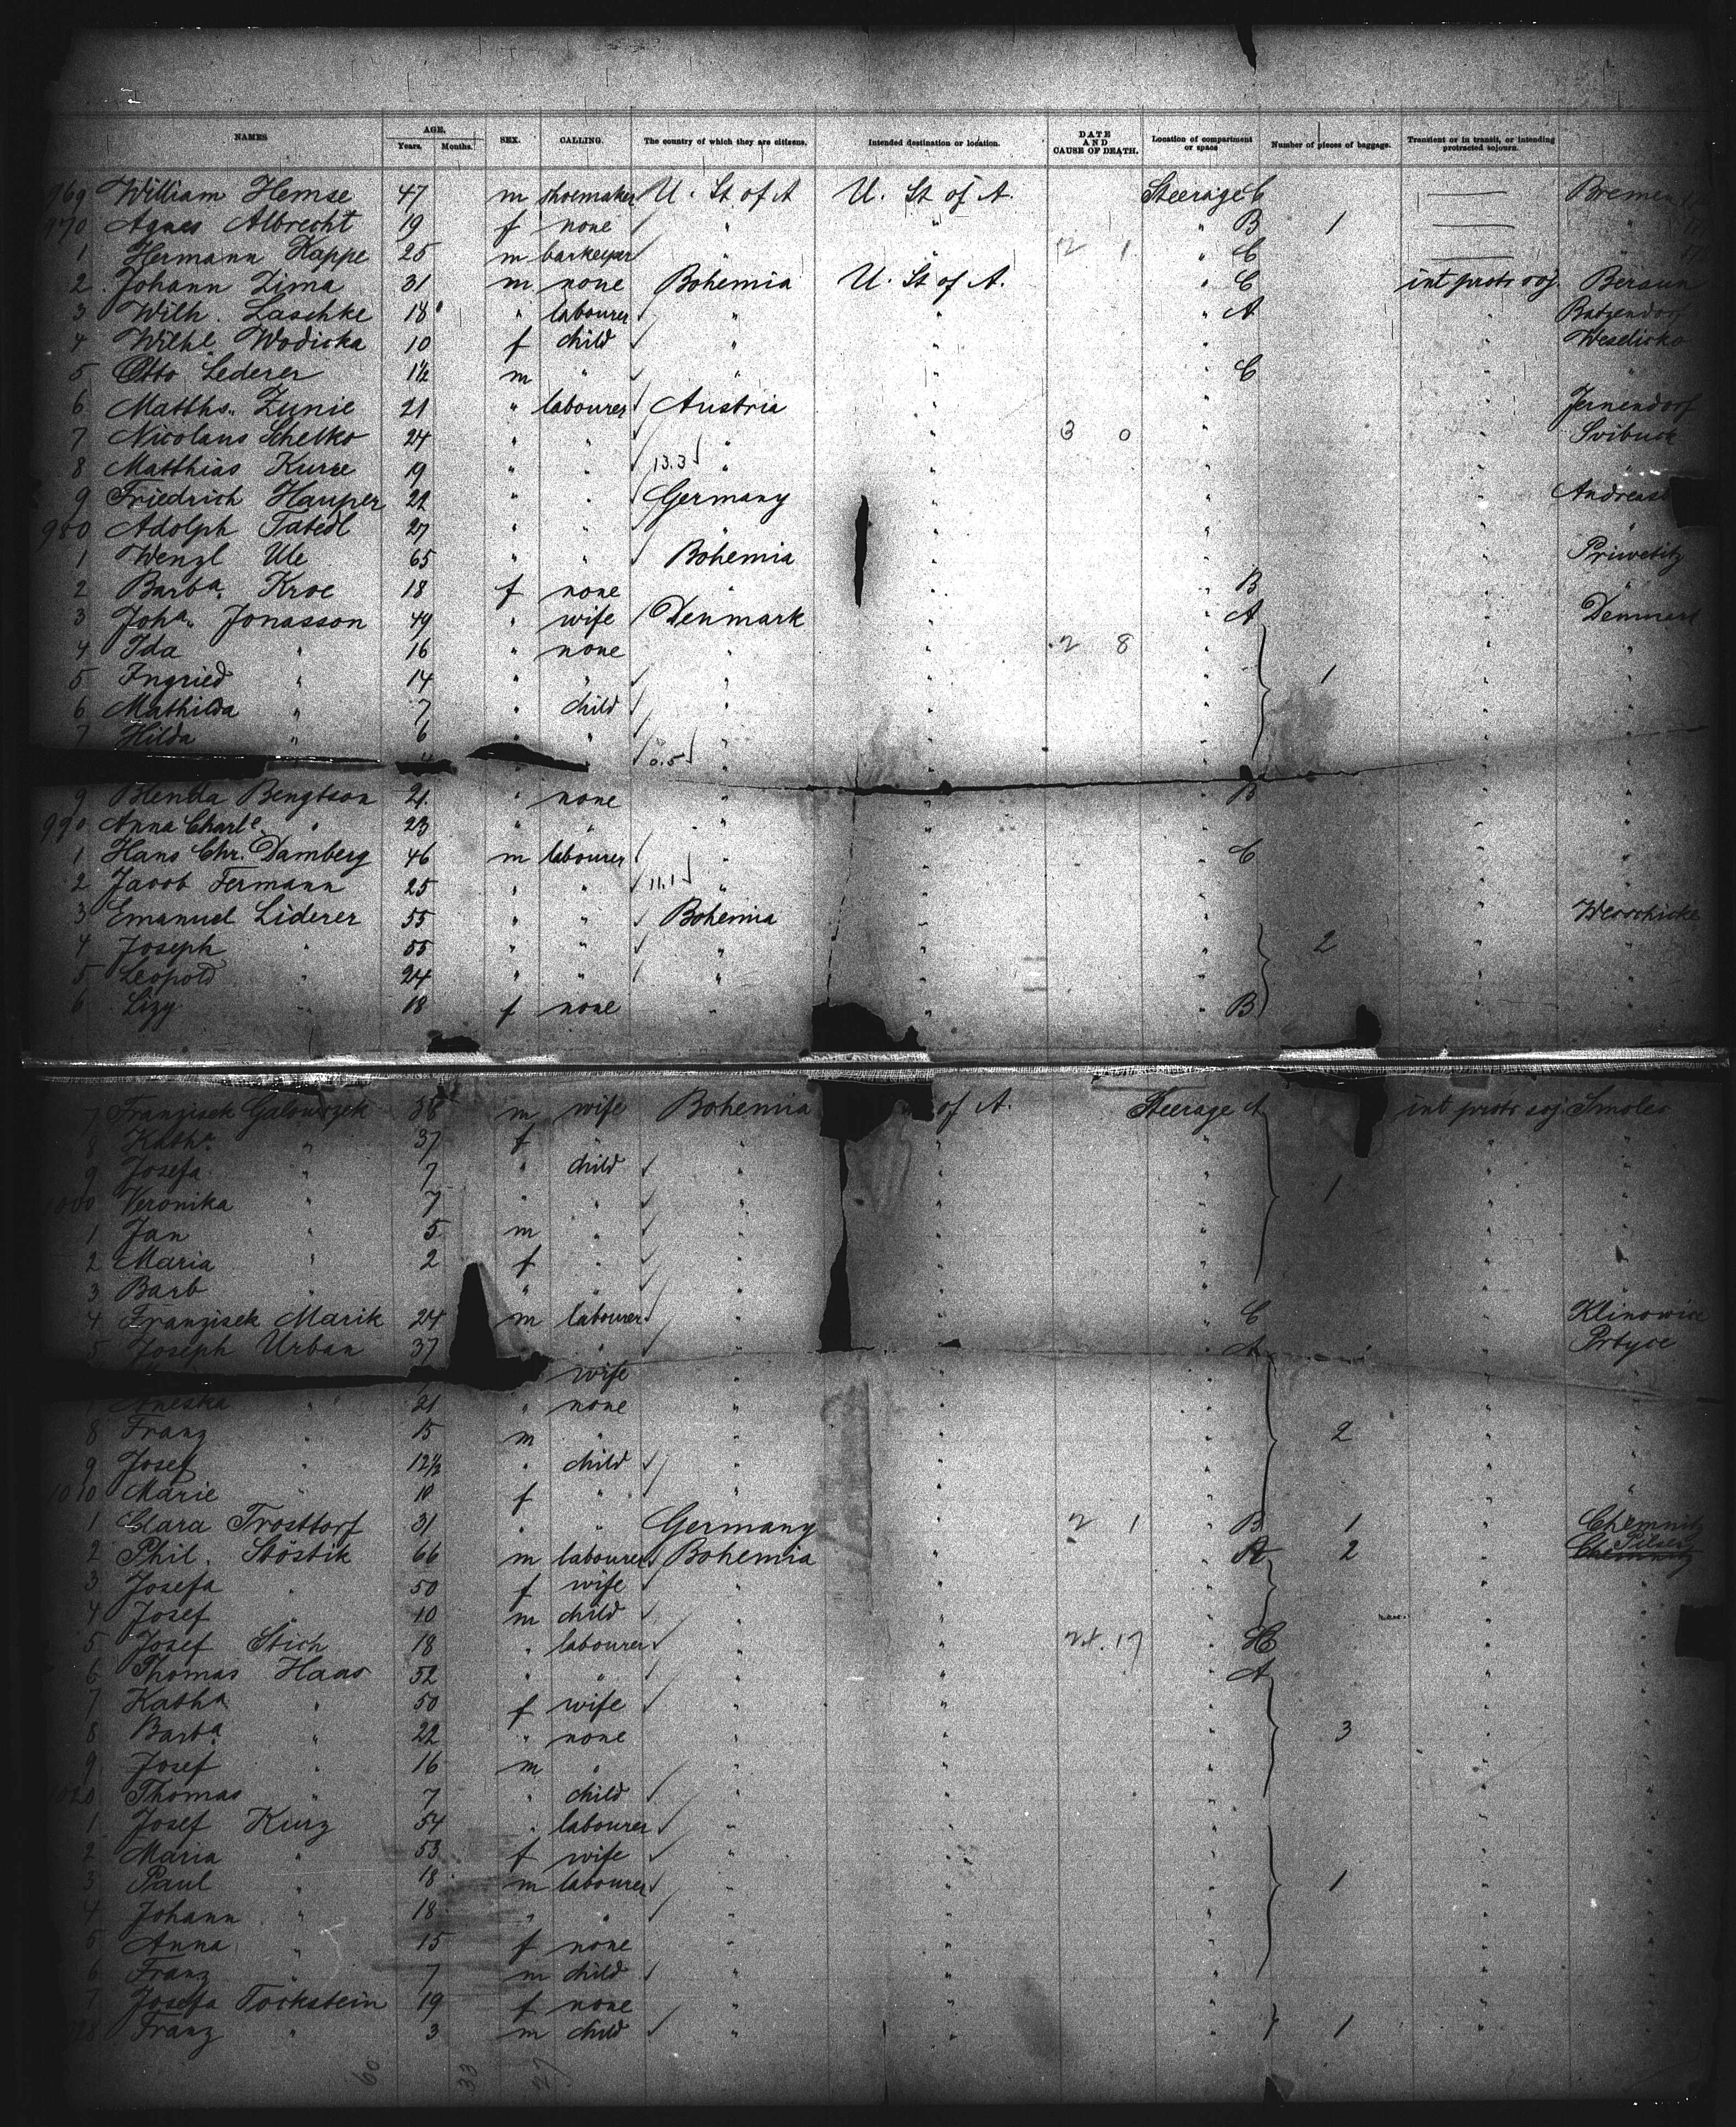 NAMES AGE. Years. Months. SEX. CALLING. The country of which they are citizens. Intended destination or location. DATE AND CAUSE OF DEATH. Location of compartment or space Number of pieces of baggage. Transient or in transit, or intending protracted sojourn.
969 William Hemse 47 m shoemaker U. St of A U. St of A. Steerage C — Bremen
970 Agnes Albrecht 19 f none " " " B 1 — "
1 Hermann Kappe 25 m barkeeper " " 2 1 " C —
2 Johann Zima 31 m none Bohemia U. St of A. " C int protr soj. Beraun
3 Wilh. Laschke 18 " labourer " " " A " Batzendorf
4 Wilhl. Wodicka 10 f child " " " " Weselicko
5 Otto Lederer 1½ m " " " " C " "
6 Matths. Zunic 21 " labourer Austria " " " Jernendorf
7 Nicolaus Schelko 24 " " " " 3 0 " " Svibuck
8 Matthias Kurre 19 " " 13.3 " " " " "
9 Friedrich Hauper 22 " " Germany " " "
980 Adolph Tabedl 27 " " " " " " "
1 Wenzl Ule 65 " " Bohemia " " " Priwetitz
2 Barba. Kroc 18 f none " " " B " "
3 Joha. Jonasson 49 " wife Denmark " " A " Denmark
4 Ida " 16 " none " " 2 8 " " "
5 Ingried " 14 " " " " " 1 " "
6 Mathilda " 7 " child " " " " "
7 Hilda " 6 " " " " " " "
0.5
9 Blenda Bengtson 21 " none " " " B " "
990 Anna Charle. " 23 " " " " " " "
1 Hans Chr. Damberg 46 m labourer " " " C " "
2 Jacob Fermann 25 " " 11.1 " " " " "
3 Emanuel Liderer 55 " " Bohemia " " " Wesschicke
4 Joseph " 55 " " " " " 2 " "
5 Leopold " 24 " " " " " " "
6 Lizy " 18 f none " " B " "
7 Franzisek Galowczek 38 m wife Bohemia of A. Steerage A int protr soj. Smolec
8 Katha. " 37 f " " " " " "
9 Josefa " 7 " child " " " 1 " "
1000 Veronika " 7 " " " " " " "
1 Jan " 5 m " " " " " "
2 Maria " 2 f " " " " " "
3 Barb " " " " " " " "
4 Franzisek Marik 24 m labourer " " " C " Klinowice
5 Joseph Urban 37 " " " " A " Prtyce
wife " " " " "
Aneska " 21 " none " " " " "
8 Franz " 15 m " " " " 2 " "
9 Josef " 12½ " child " " " " "
1010 Marie " 10 f " " " " " "
1 Clara Trosttorf 31 " " Germany " 2 1 " B 1 " Chemnitz
2 Phil. Stöstik 66 m labourer Bohemia " " A 2 " Pilsen
3 Josefa " 50 f wife " " " " "
4 Josef " 10 m child " " " " "
5 Josef Stich 18 " labourer " " " C " "
6 Thomas Haas 52 " " " " " A " "
7 Katha " 50 f wife " " " " "
8 Barba. " 22 " none " " " 3 " "
9 Josef " 16 m " " " " " "
1020 Thomas " 7 " child " " " " "
1 Josef Kurz 54 " labourer " " " " "
2 Maria " 53 f wife " " " " "
3 Paul " 18 m labourer " " " 1 " "
4 Johann " 18 " " " " " " "
5 Anna " 15 f none " " " " "
6 Franz " 7 m child " " " " "
7 Josefa Tockstein 19 f none " " " " "
28 Franz " 3 m child " " " 1 " "
60 33 27